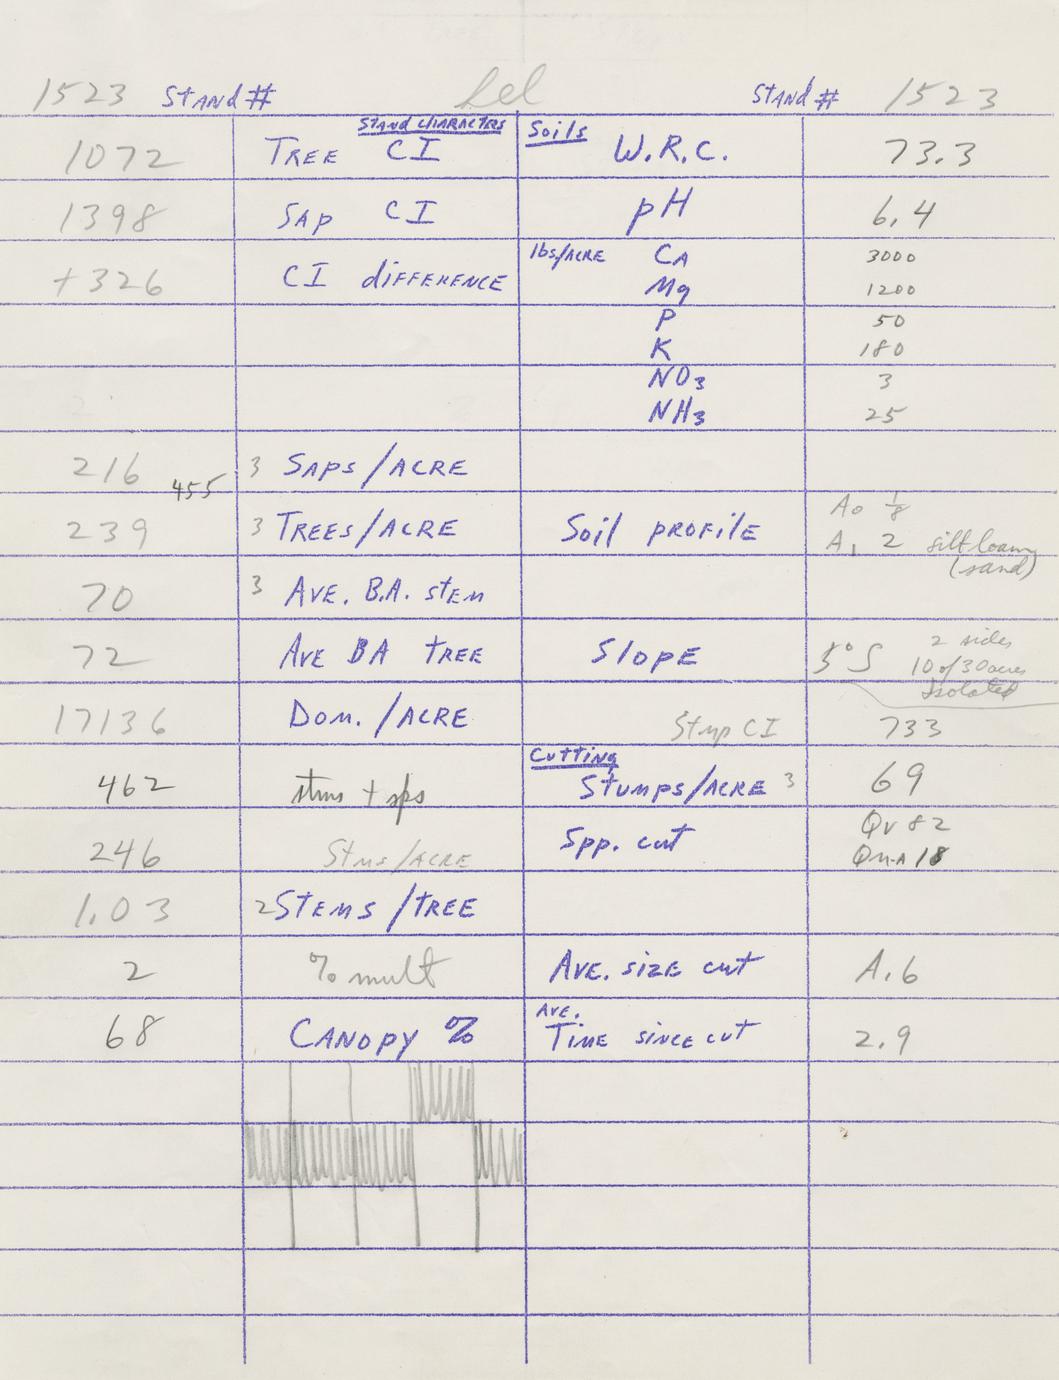 1523 Stand # Lel Stand # 1523
Stand Characters Soils
1072 Tree CI W.R.C. 73.3
1398 Sap CI pH 6.4
lbs/acre Ca 3000
+326 CI difference Mg 1200
P 50
K 180
NO3 3
NH3 25
216 3 Saps/Acre
455 A0 1/8
239 3 Trees/Acre Soil profile A1 2 silt loam
(sand)
70 3 Ave. B.A. stem
2 sides
72 Ave BA tree Slope 5° S 10 of 30 acres
Isolated
17136 Dom./Acre Stmp CI 733
Cutting
462 stms + sps Stumps/Acre 3 69
Qv 82
246 Stms/Acre Spp. cut Qu-A 18
1.03 2 Stems/tree
2 % mult Ave. size cut A.6
Ave.
68 Canopy % Time since cut 2.9